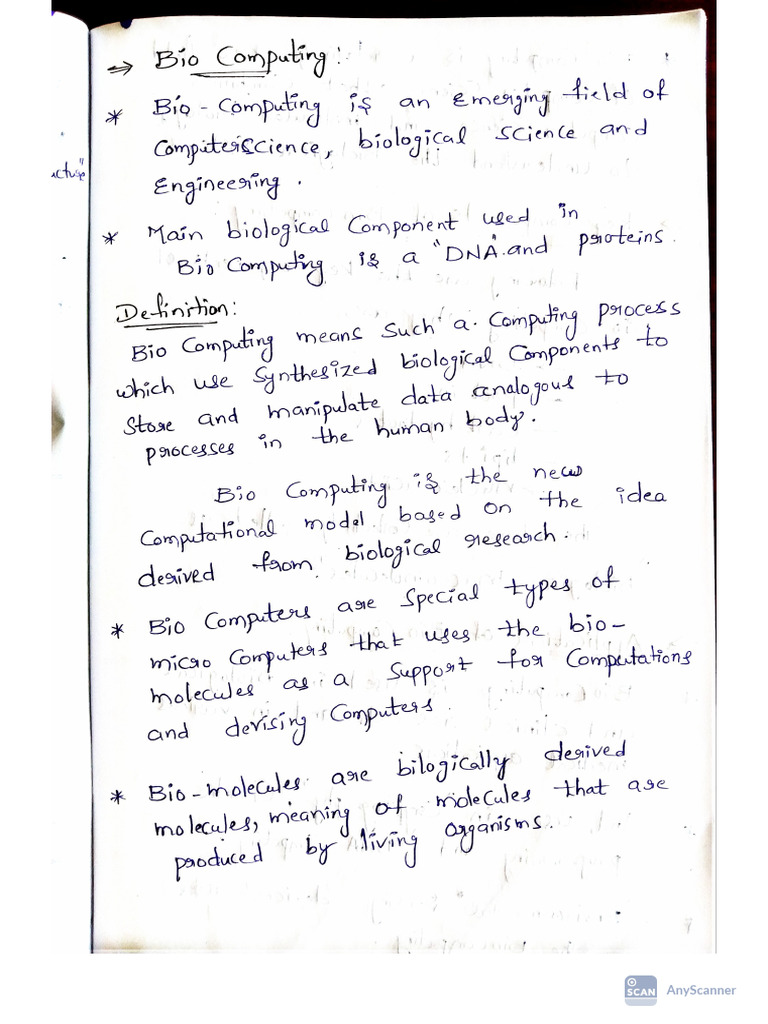 ⇒ Bio Computing:
* Bio-Computing is an Emerging field of
Computerscience, biological science and
Engineering.
* Main biological Component used in
Bio Computing is a "DNA" and proteins.
Definition:
Bio Computing means such a Computing process
which use synthesized biological Components to
store and manipulate data analogous to
processes in the human body.
Bio Computing is the new
Computational model based on the idea
derived from biological research.
* Bio Computers are special types of
micro Computers that uses the bio-
molecules as a support for Computations
and devising Computers.
* Bio-molecules are bilogically derived
molecules, meaning of molecules that are
produced by living organisms.
SCAN AnyScanner